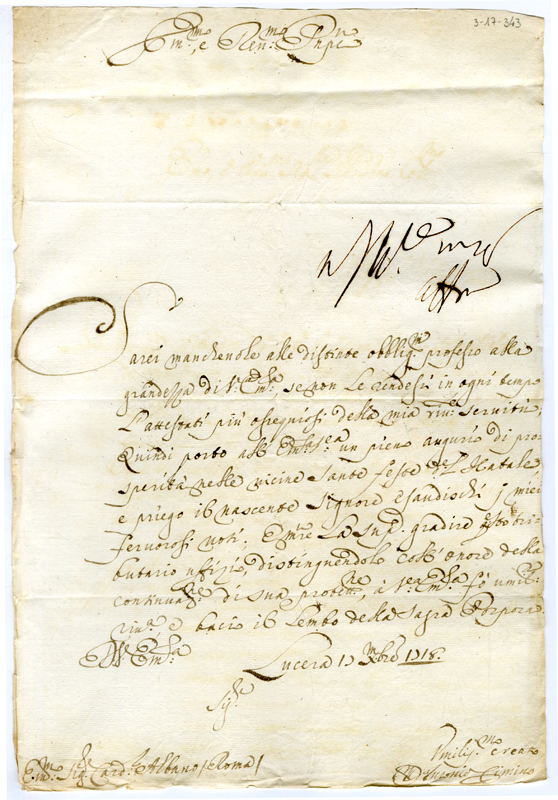 3-17-343
Em.mo, e Rev.mo Pnpe
Sarei manchevole alle distinte obblig.ni professo alla
grandezza di V.ra Em.za, se non le rendessi in ogni tempo
L'attestati più ossequiosi della mia riv.te servitù.
Quindi porto all'Em.za S.ua un pieno augurio di pro
sperità nelle vicine Sante feste del S. Natale
e priego il nascente Signore esaudischi i miei
fervorosi voti. E mre La sup.co gradire q.sto tri
butario uffizio, distinguendolo coll'onore della
continuaz.ne di sua protez.ne, à V.ra Em.za fò umil.ma
riv.za e bacio il Lembo della Sagra Porpora
D.V. Em.za
Lucera 17 Xbre 1718.
Em.mo Sig.re Card.l Albano / Roma /
Umiliss.mo
D. Antonio